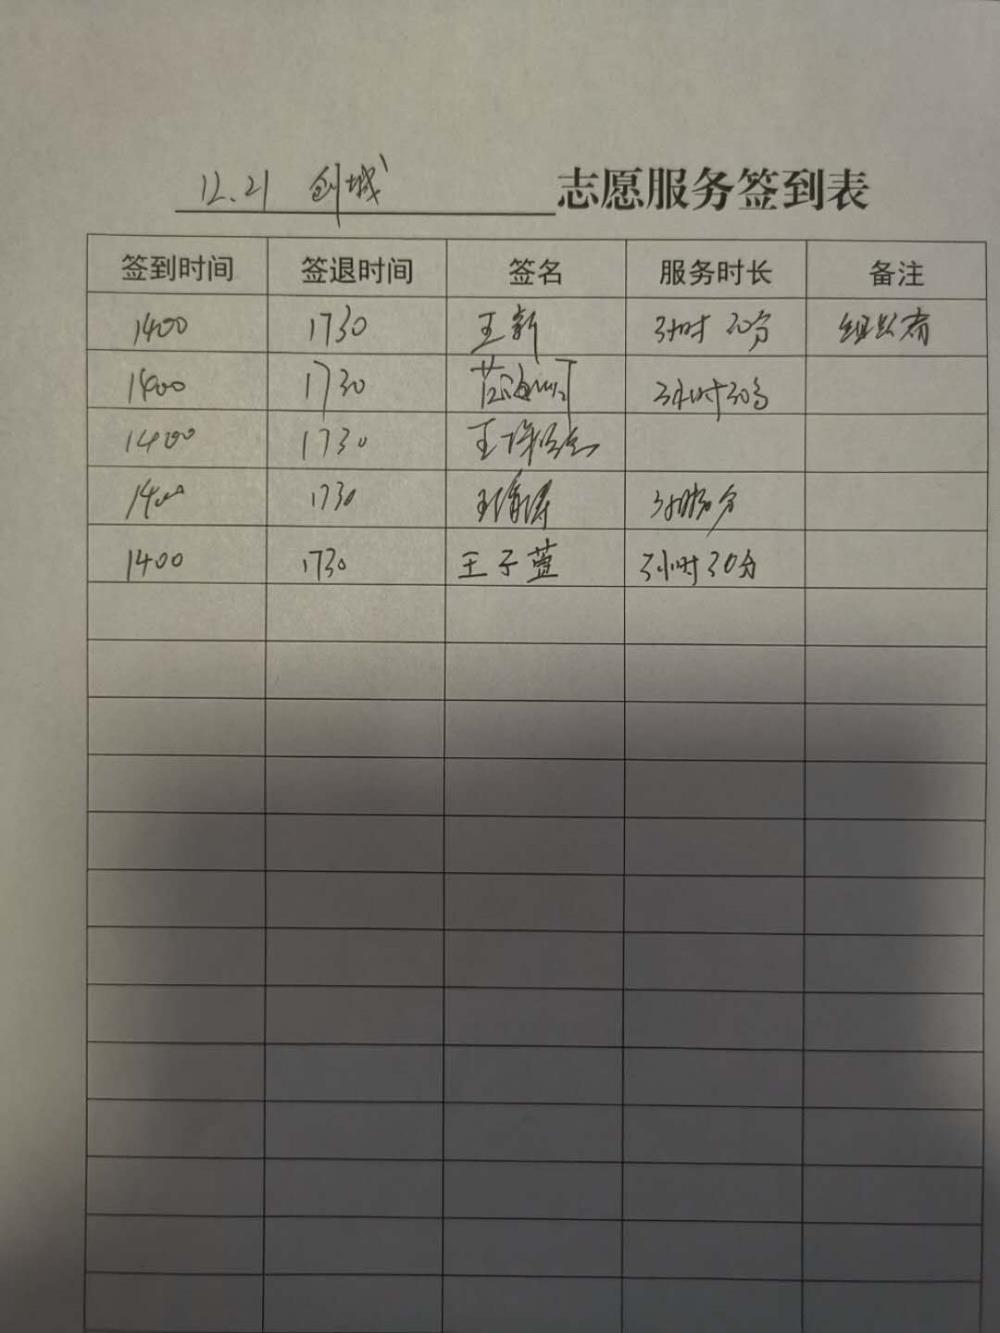 12.21 创城 志愿服务签到表
签到时间 签退时间 签名 服务时长 备注
1400 1730 王新 3小时30分 组织者
1400 1730 3小时30分
1400 1730 王
1400 1730 王 3小时30分
1400 1730 王子萱 3小时30分